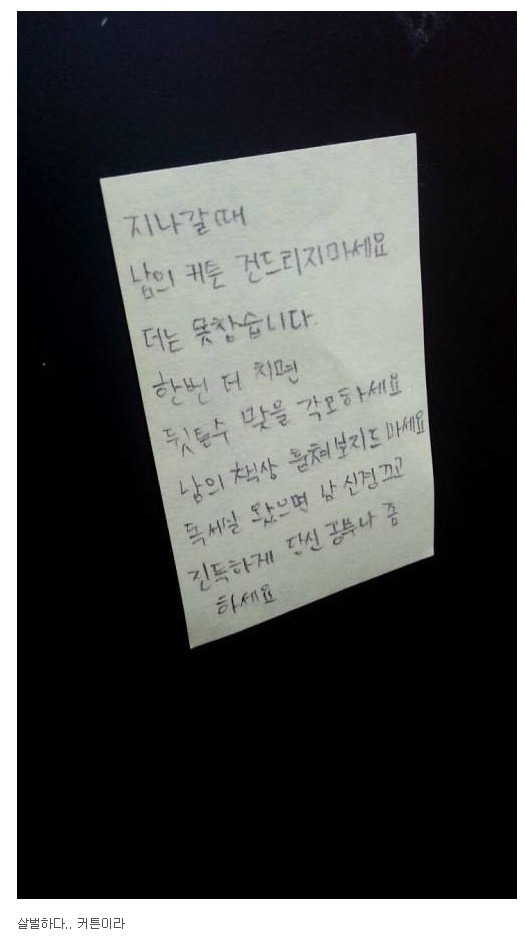 지나갈때
남의 커튼 건드리지마세요
더는 못참습니다.
한번 더 치면
뒷통수 맞을 각오하세요
남의 책상 훔쳐보지도 마세요
독서실 왔으면 남 신경끄고
진득하게 당신 공부나 좀
하세요
살벌하다.. 커튼이라